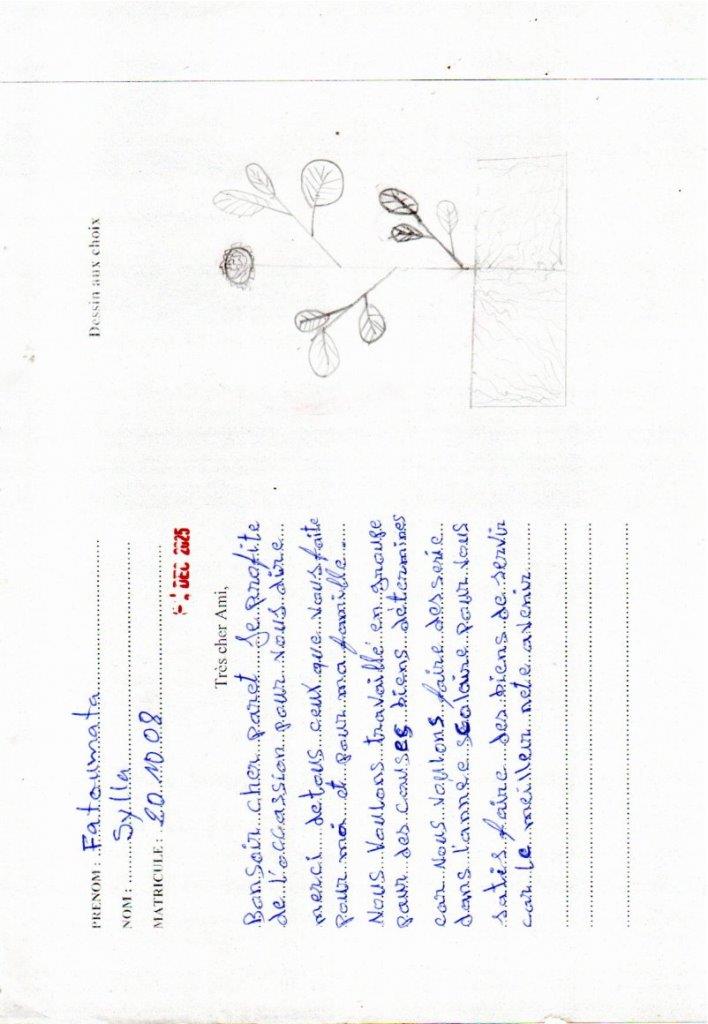 PRENOM : Fatoumata
NOM : Sylla
MATRICULE : 20.10.08
DEC 2025
Très cher Ami,
Bonsoir cher paret Je profite
de l'occassion pour vous dire
merci de tous ceux que vous faite
pour moi et pour ma famille
Nous Voulons travaillé en groupe
pour des causes biens déterminés
car nous voulons faire des serie
dans l'annee scolaire pour vous
satis faire des biens de servir
car le meilleur nete avenir
Dessin aux choix